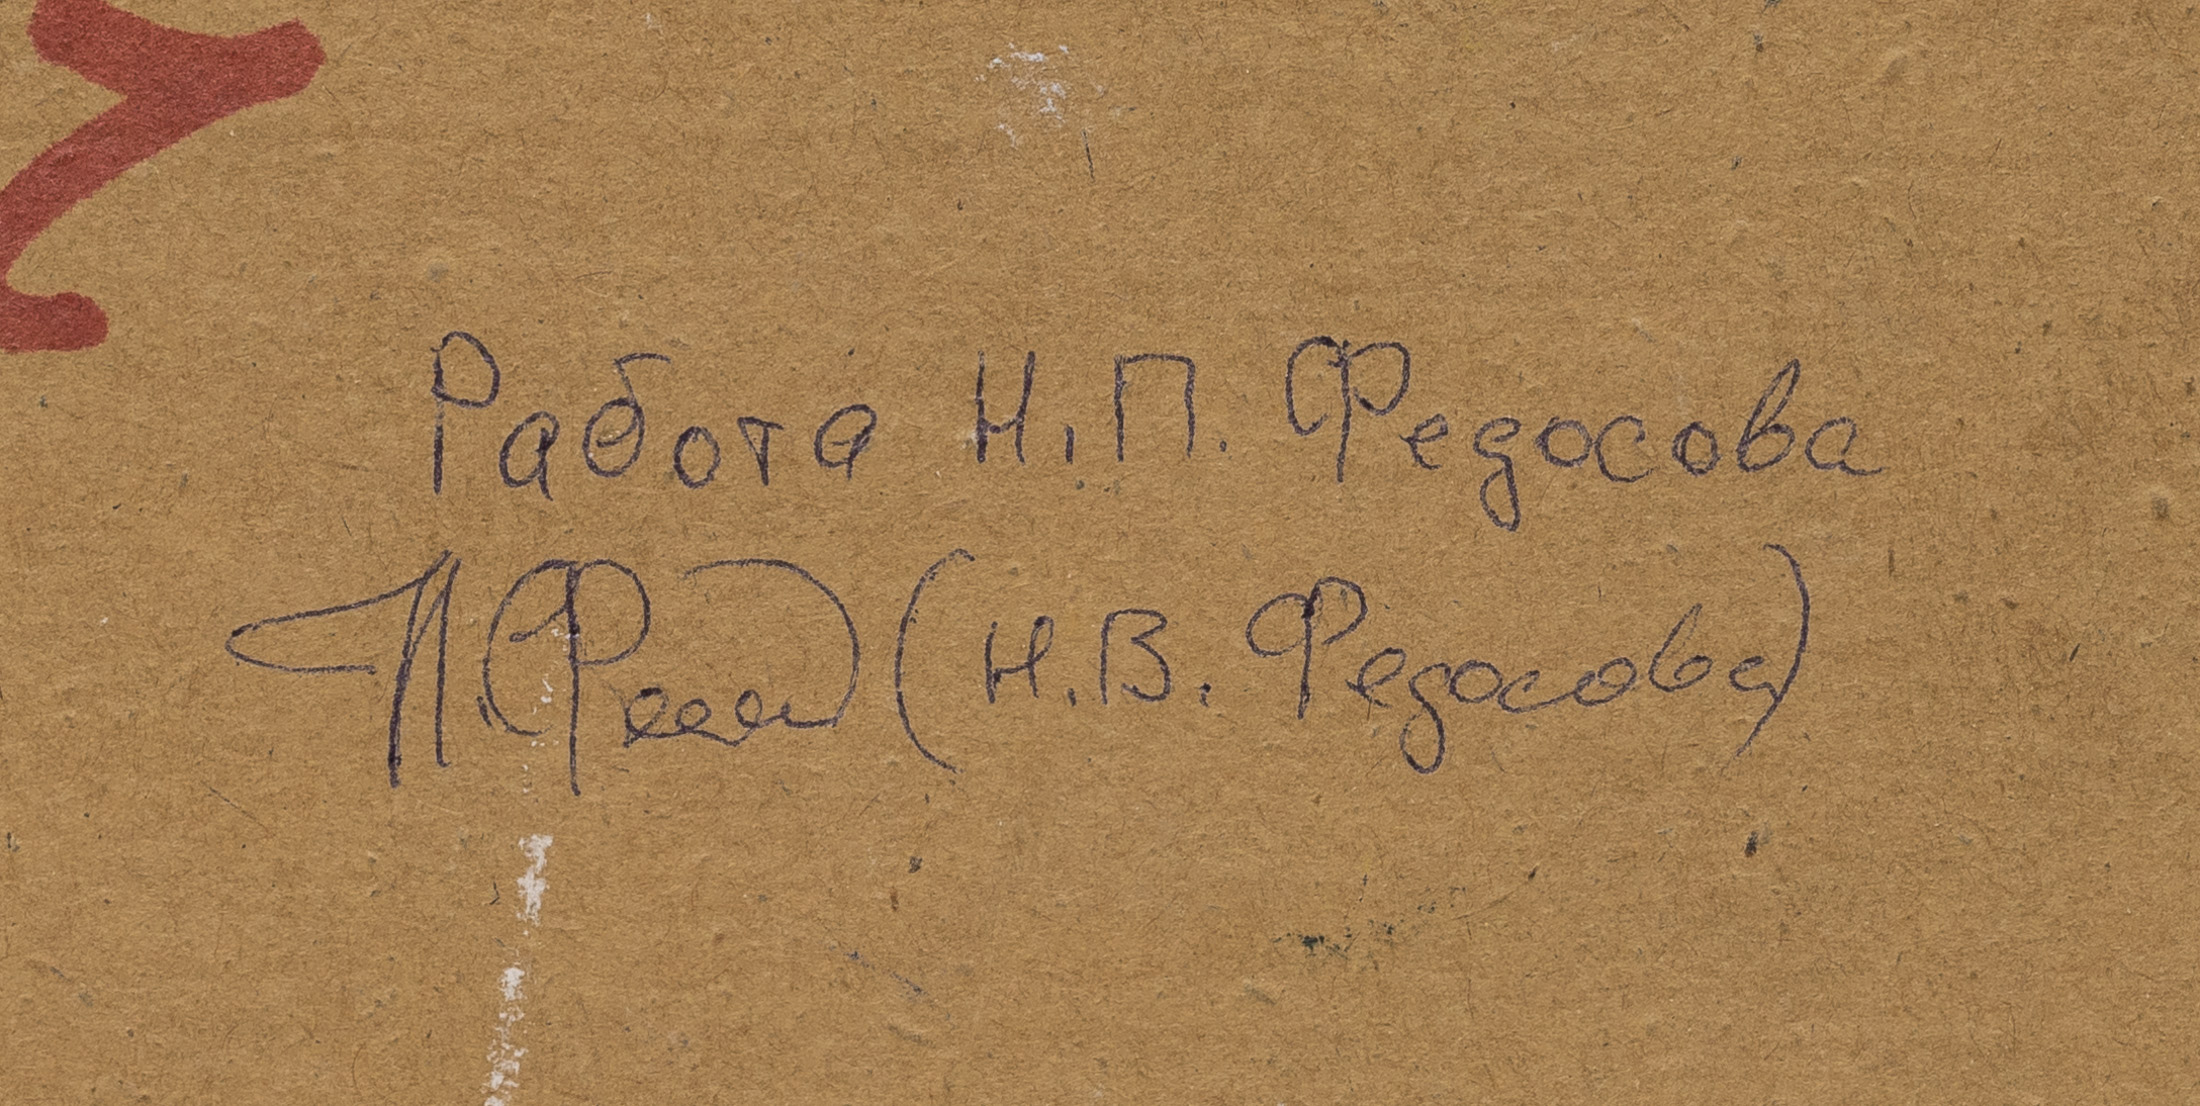 Работа Н.П. Федосова
(Н.В. Федосова)